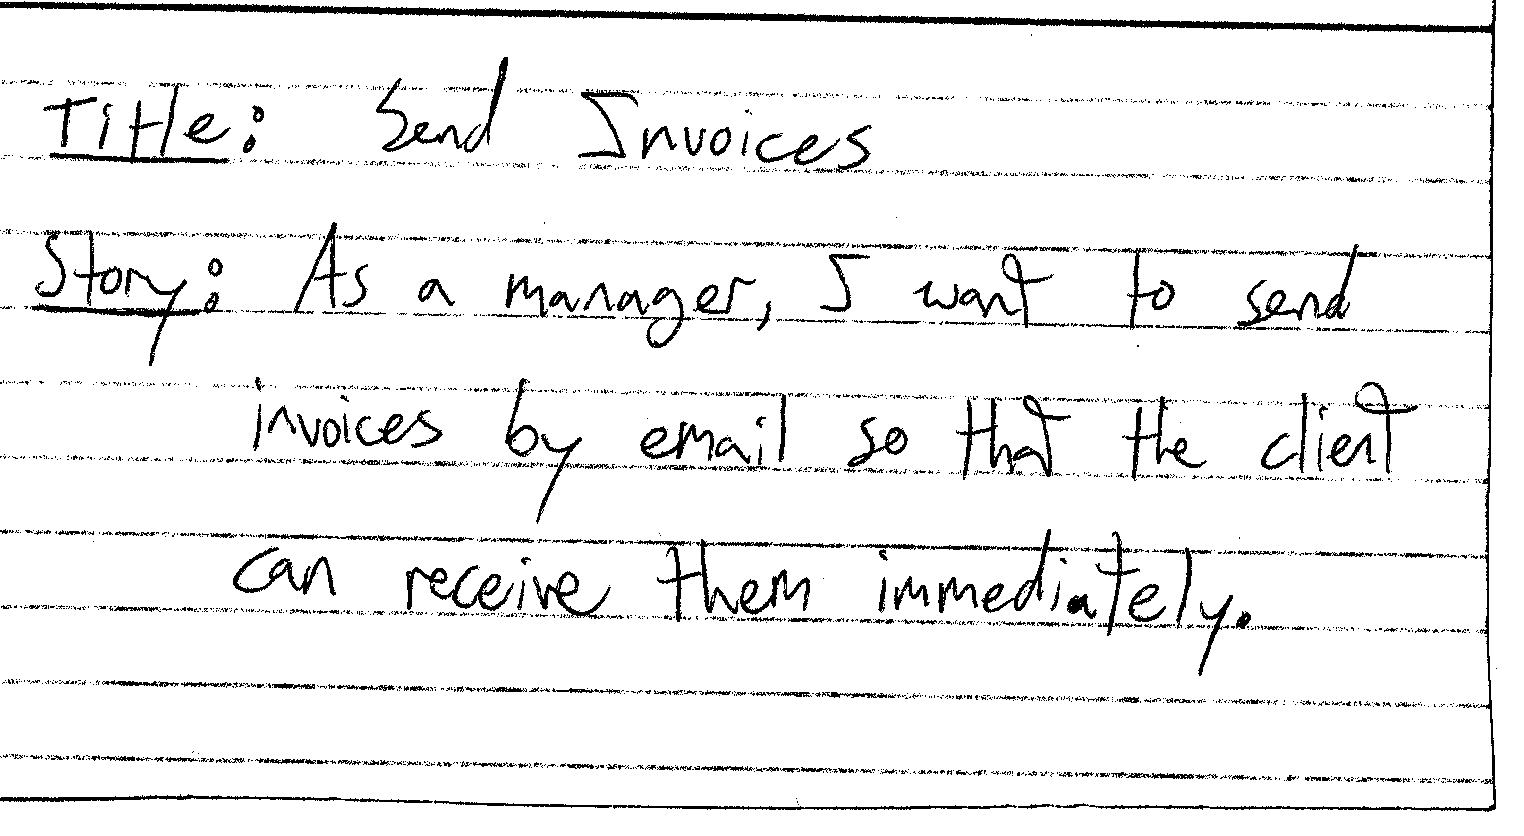 Title: Send Invoices
Story: As a manager, I want to send
invoices by email so that the client
can receive them immediately.